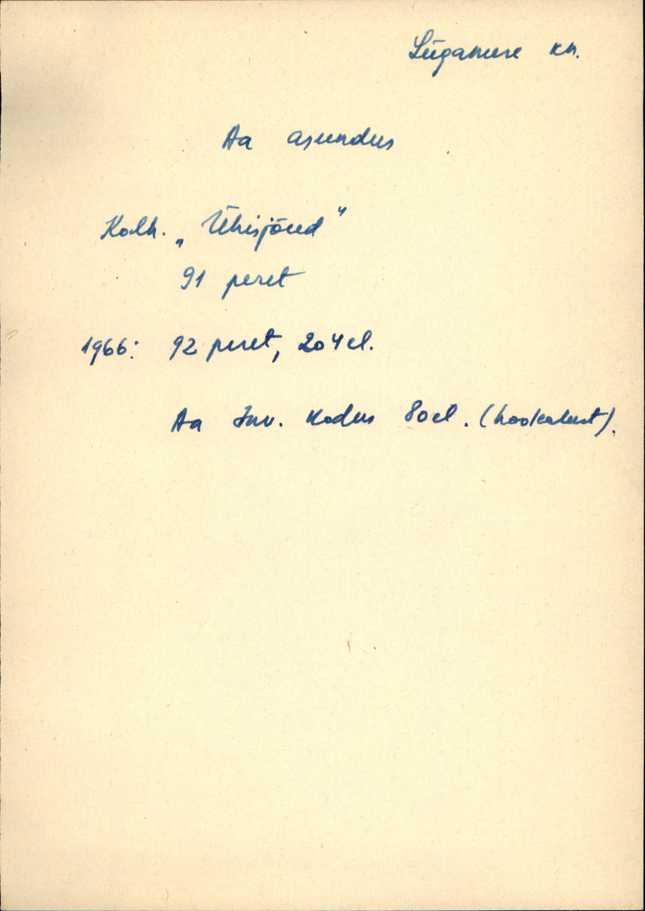 Lüganuse kn.
Aa asundus
Kolh. „Ühisjõud"
91 peret
1966: 92 peret, 204 el.
Aa Inv. Kodus 80 el. (hooealust).